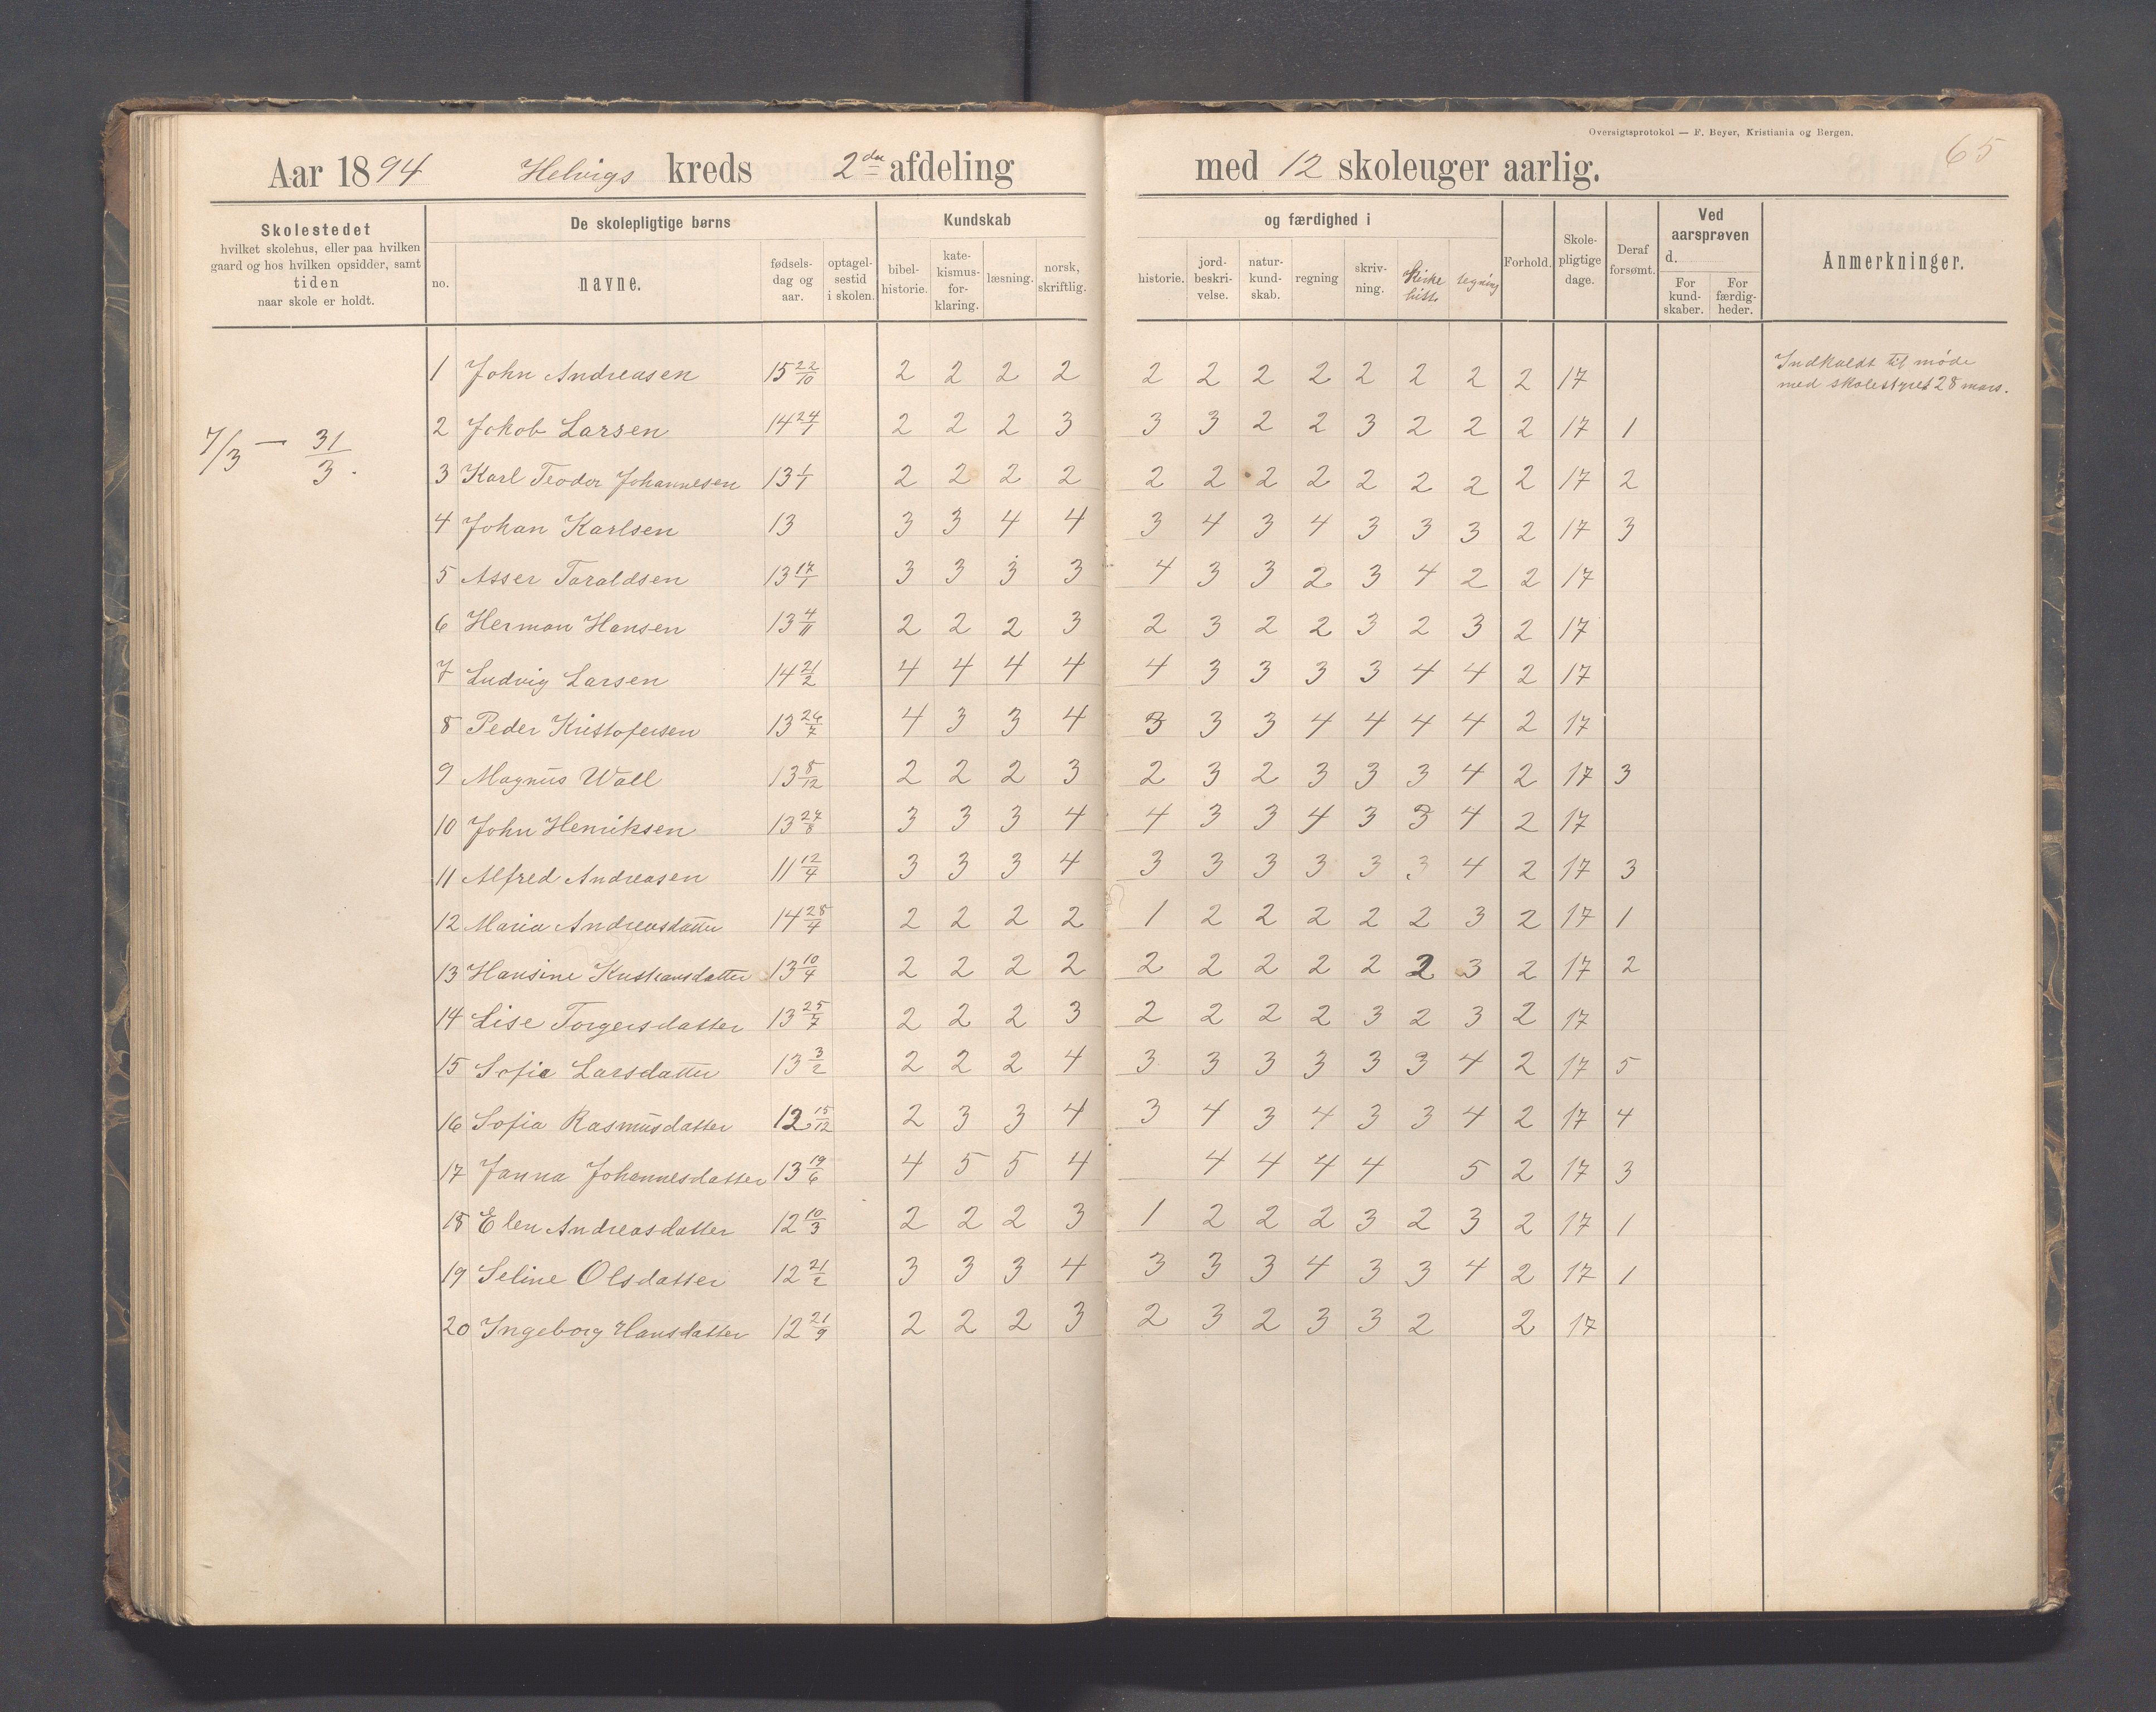 Oversigtsprotokol — F. Beyer, Kristiania og Bergen.
65
Aar 1894 Helvigs kreds 2den afdeling med 12 skoleuger aarlig.
Skolestedet
hvilket skolehus, eller paa hvilken
gaard og hos hvilken opsidder, samt
tiden
naar skole er holdt.
De skolepligtige børns
no.
navne.
fødsels-
dag og
aar.
optagel-
sestid
i skolen.
Kundskab
bibel-
historie.
kate-
kismus-
for-
klaring.
læsning.
norsk,
skriftlig.
og færdighed i
historie.
jord-
beskri-
velse.
natur-
kund-
skab.
regning
skriv-
ning.
Kirke
hist.
tegning
Forhold.
Skole-
pligtige
dage.
Deraf
forsømt.
Ved
aarsprøven
d.
For
kund-
skaber.
For
færdig-
heder.
Anmerkninger.
7/3 — 31/3.
1 John Andreasen 15 22/10 2 2 2 2 2 2 2 2 2 2 2 2 17 Indkaldt til møde
med skolestyret 28 mars.
2 Jokob Larsen 14 24/1 2 2 2 3 3 3 2 2 3 2 2 2 17 1
3 Karl Teodor Johannesen 13 1/1 2 2 2 2 2 2 2 2 2 2 2 2 17 2
4 Johan Karlsen 13 3 3 4 4 3 4 3 4 3 3 3 2 17 3
5 Asser Taraldsen 13 17/1 3 3 3 3 4 3 3 2 3 4 2 2 17
6 Herman Hansen 13 4/11 2 2 2 3 2 3 2 2 3 2 3 2 17
7 Ludvig Larsen 14 21/2 4 4 4 4 4 3 3 3 3 4 4 2 17
8 Peder Kristofersen 13 26/7 4 3 3 4 3 3 3 4 4 4 4 2 17
9 Magnus Wall 13 8/12 2 2 2 3 2 3 2 3 3 3 4 2 17 3
10 John Henriksen 13 27/8 3 3 3 4 4 3 3 4 3 3 4 2 17
11 Alfred Andreasen 11 12/4 3 3 3 4 3 3 3 3 3 3 4 2 17 3
12 Maria Andreasdatter 14 28/4 2 2 2 2 1 2 2 2 2 2 3 2 17 1
13 Hansine Kristiansdatter 13 10/4 2 2 2 2 2 2 2 2 2 2 3 2 17 2
14 Lise Torgersdatter 13 25/7 2 2 2 3 2 2 2 2 3 2 3 2 17
15 Sofie Larsdatter 13 3/2 2 2 2 4 3 3 3 3 3 3 4 2 17 5
16 Sofia Rasmusdatter 12 15/12 2 3 3 4 3 4 3 4 3 3 4 2 17 4
17 Janna Johannesdatter 13 19/6 4 5 5 4 4 4 4 4 5 2 17 3
18 Elen Andreasdatter 12 10/3 2 2 2 3 1 2 2 2 3 2 3 2 17 1
19 Seline Olsdatter 12 21/2 3 3 3 4 3 3 3 4 3 3 4 2 17 1
20 Ingeborg Hansdatter 12 21/9 2 2 2 3 2 3 2 3 3 2 2 17